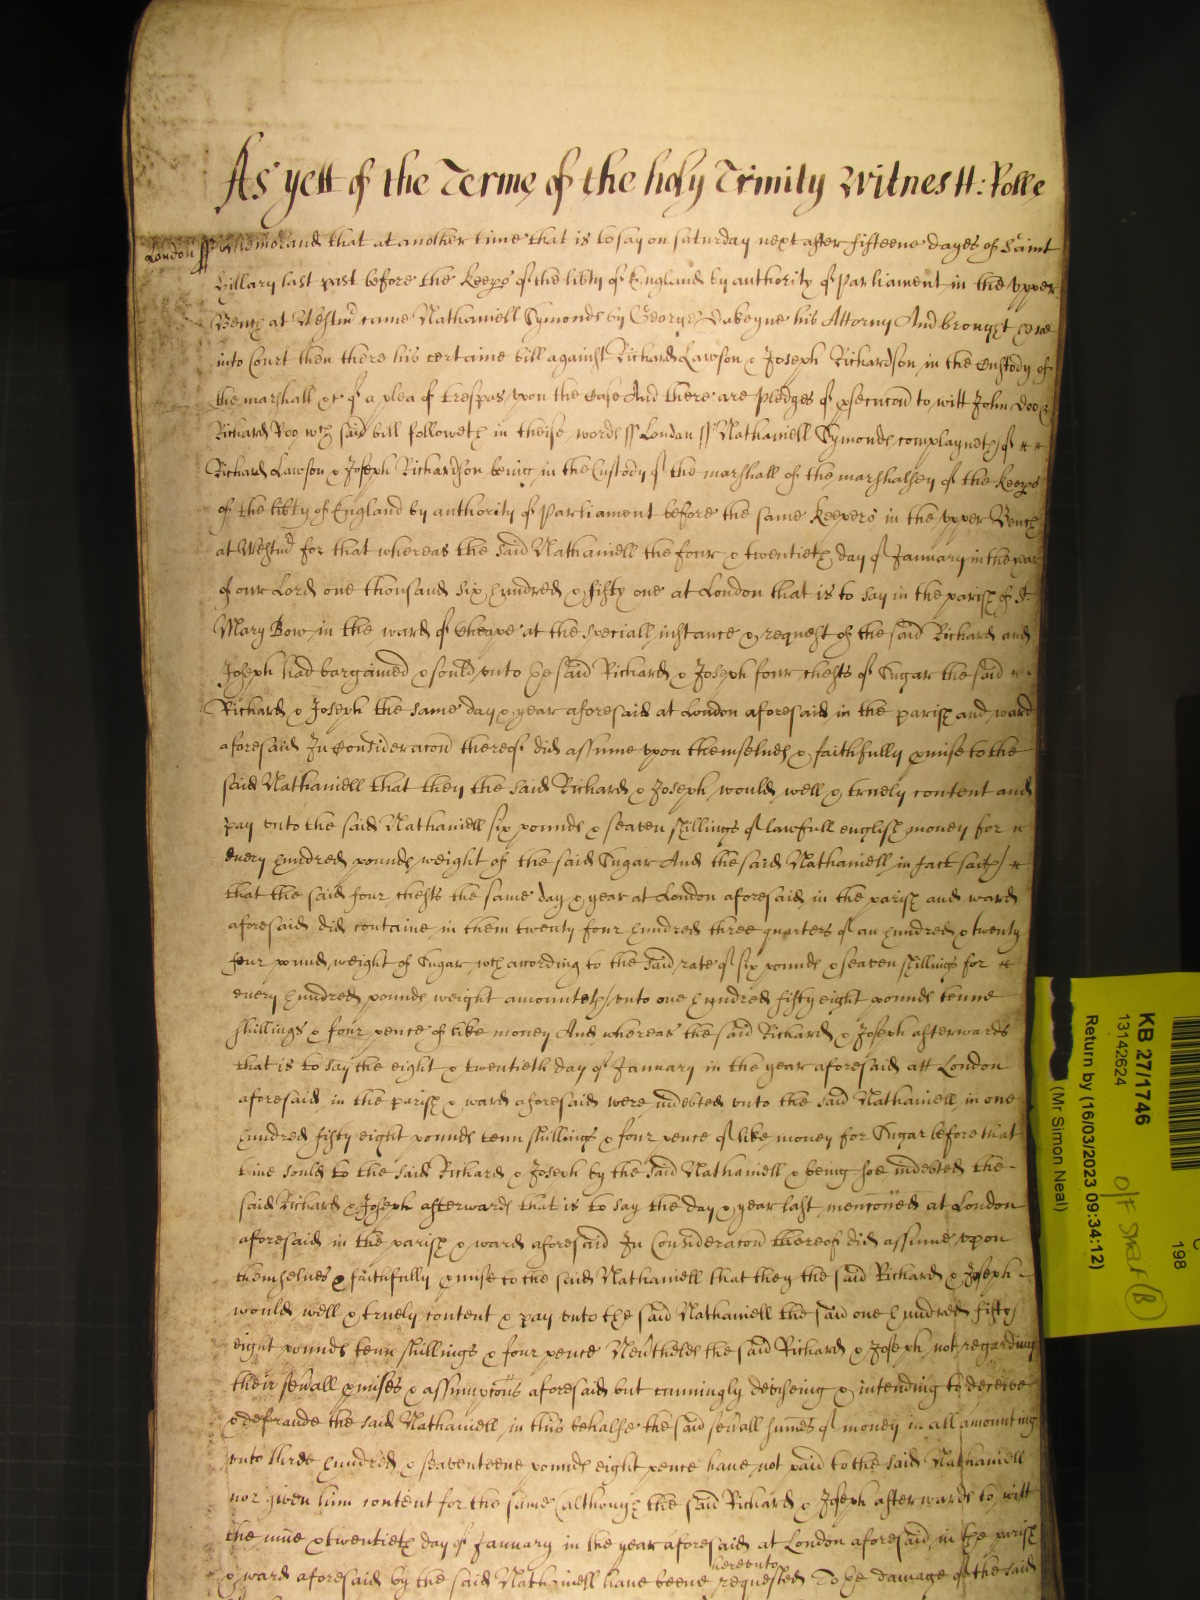 As yett of the Terme of the holy Trinity Witnes H: Rolle
London ss Memorand that at another time that is to say on saturday next after fifteene dayes of Saint
Hillary last past before the Keeps of the libty of England by authority of Parliament in the upper
Bench at Westmr came Nathaniell Symonds by George his Attorny And brought here
into Court then there his certaine bill against Richard Lawson & Joseph Richardson in the Custody of
the marshall &c of a plea of trespas upon the Case And there are pledges of psecucon to witt John Doo &
Richard Roo wch said bill followeth in theise words ss London ss Nathaniell Symonds complayneth of
Richard Lawson & Joseph Richardson being in the Custody of the marshall of the marshalsey of the Keeps
of the libty of England by authority of Parliament before the same Keepers in the upper Bench
at Westmr for that whereas the said Nathaniell the four & twentieth day of January in the year
of our Lord one thousand six hundred & fifty one at London that is to say in the parish of St
Mary Bow in the ward of Cheape at the speciall instance & request of the said Richard and
Joseph had bargained & sould unto ye said Richard & Joseph four chests of Sugar the said
Richard & Joseph the same day & year aforesaid at London aforesaid in the parish and ward
aforesaid In Consideracon thereof did assume upon themselues & faithfully pmise to the
said Nathaniell that they the said Richard & Joseph would well & truely content and
pay unto the said Nathaniell six pounds & seaven shillings of lawfull english money for
every hundred pounds weight of the said Sugar And the said Nathaniell in fact saith
that the said four chests the same day & year at London aforesaid in the parish and ward
aforesaid did containe in them twenty four hundred three quarters of an hundred & twenty
four pound weight of Sugar wch according to the said rate of six pounds & seaven shillings for
every hundred pounds weight amounteth unto one hundred fifty eight pounds tenne
shillings & four pence of like money And whereas the said Richard & Joseph afterwards
that is to say the eight & twentieth day of January in the year aforesaid att London
aforesaid in the parish & ward aforesaid were indebted unto the said Nathaniell in one
hundred fifty eight pounds tenn shillings & four pence of like money for Sugar before that
time sould to the said Richard & Joseph by the said Nathaniell & being soe indebted the
said Richard & Joseph afterwards that is to say the day & year last menconed at London
aforesaid in the parish & ward aforesaid In Consideracon thereof did assume upon
themselues & faithfully pmise to the said Nathaniell that they the said Richard & Joseph
would well & truely content & pay unto the said Nathaniell the said one hundred fifty
eight pounds tenn shillings & four pence Neutheles the said Richard & Joseph not regarding
their seuall pmises & assumpcons aforesaid but cunningly deviseing & intending to deceive
& defraude the said Nathaniell in this behalfe the said seuall sumes of money in all amounting
unto three hundred & seaventeene pounds eight pence have not paid to the said Nathaniell
nor given him content for the same (although the said Richard & Joseph afterwards to witt
the nine & twentieth day of January in the year aforesaid at London aforesaid in the parish
hereunto
& ward aforesaid by the said Nathaniell have beene requested To ye damage of the said
KB 27/1746
13142624
Return by (16/03/2023 09:34:12)
(Mr Simon Neal)
198